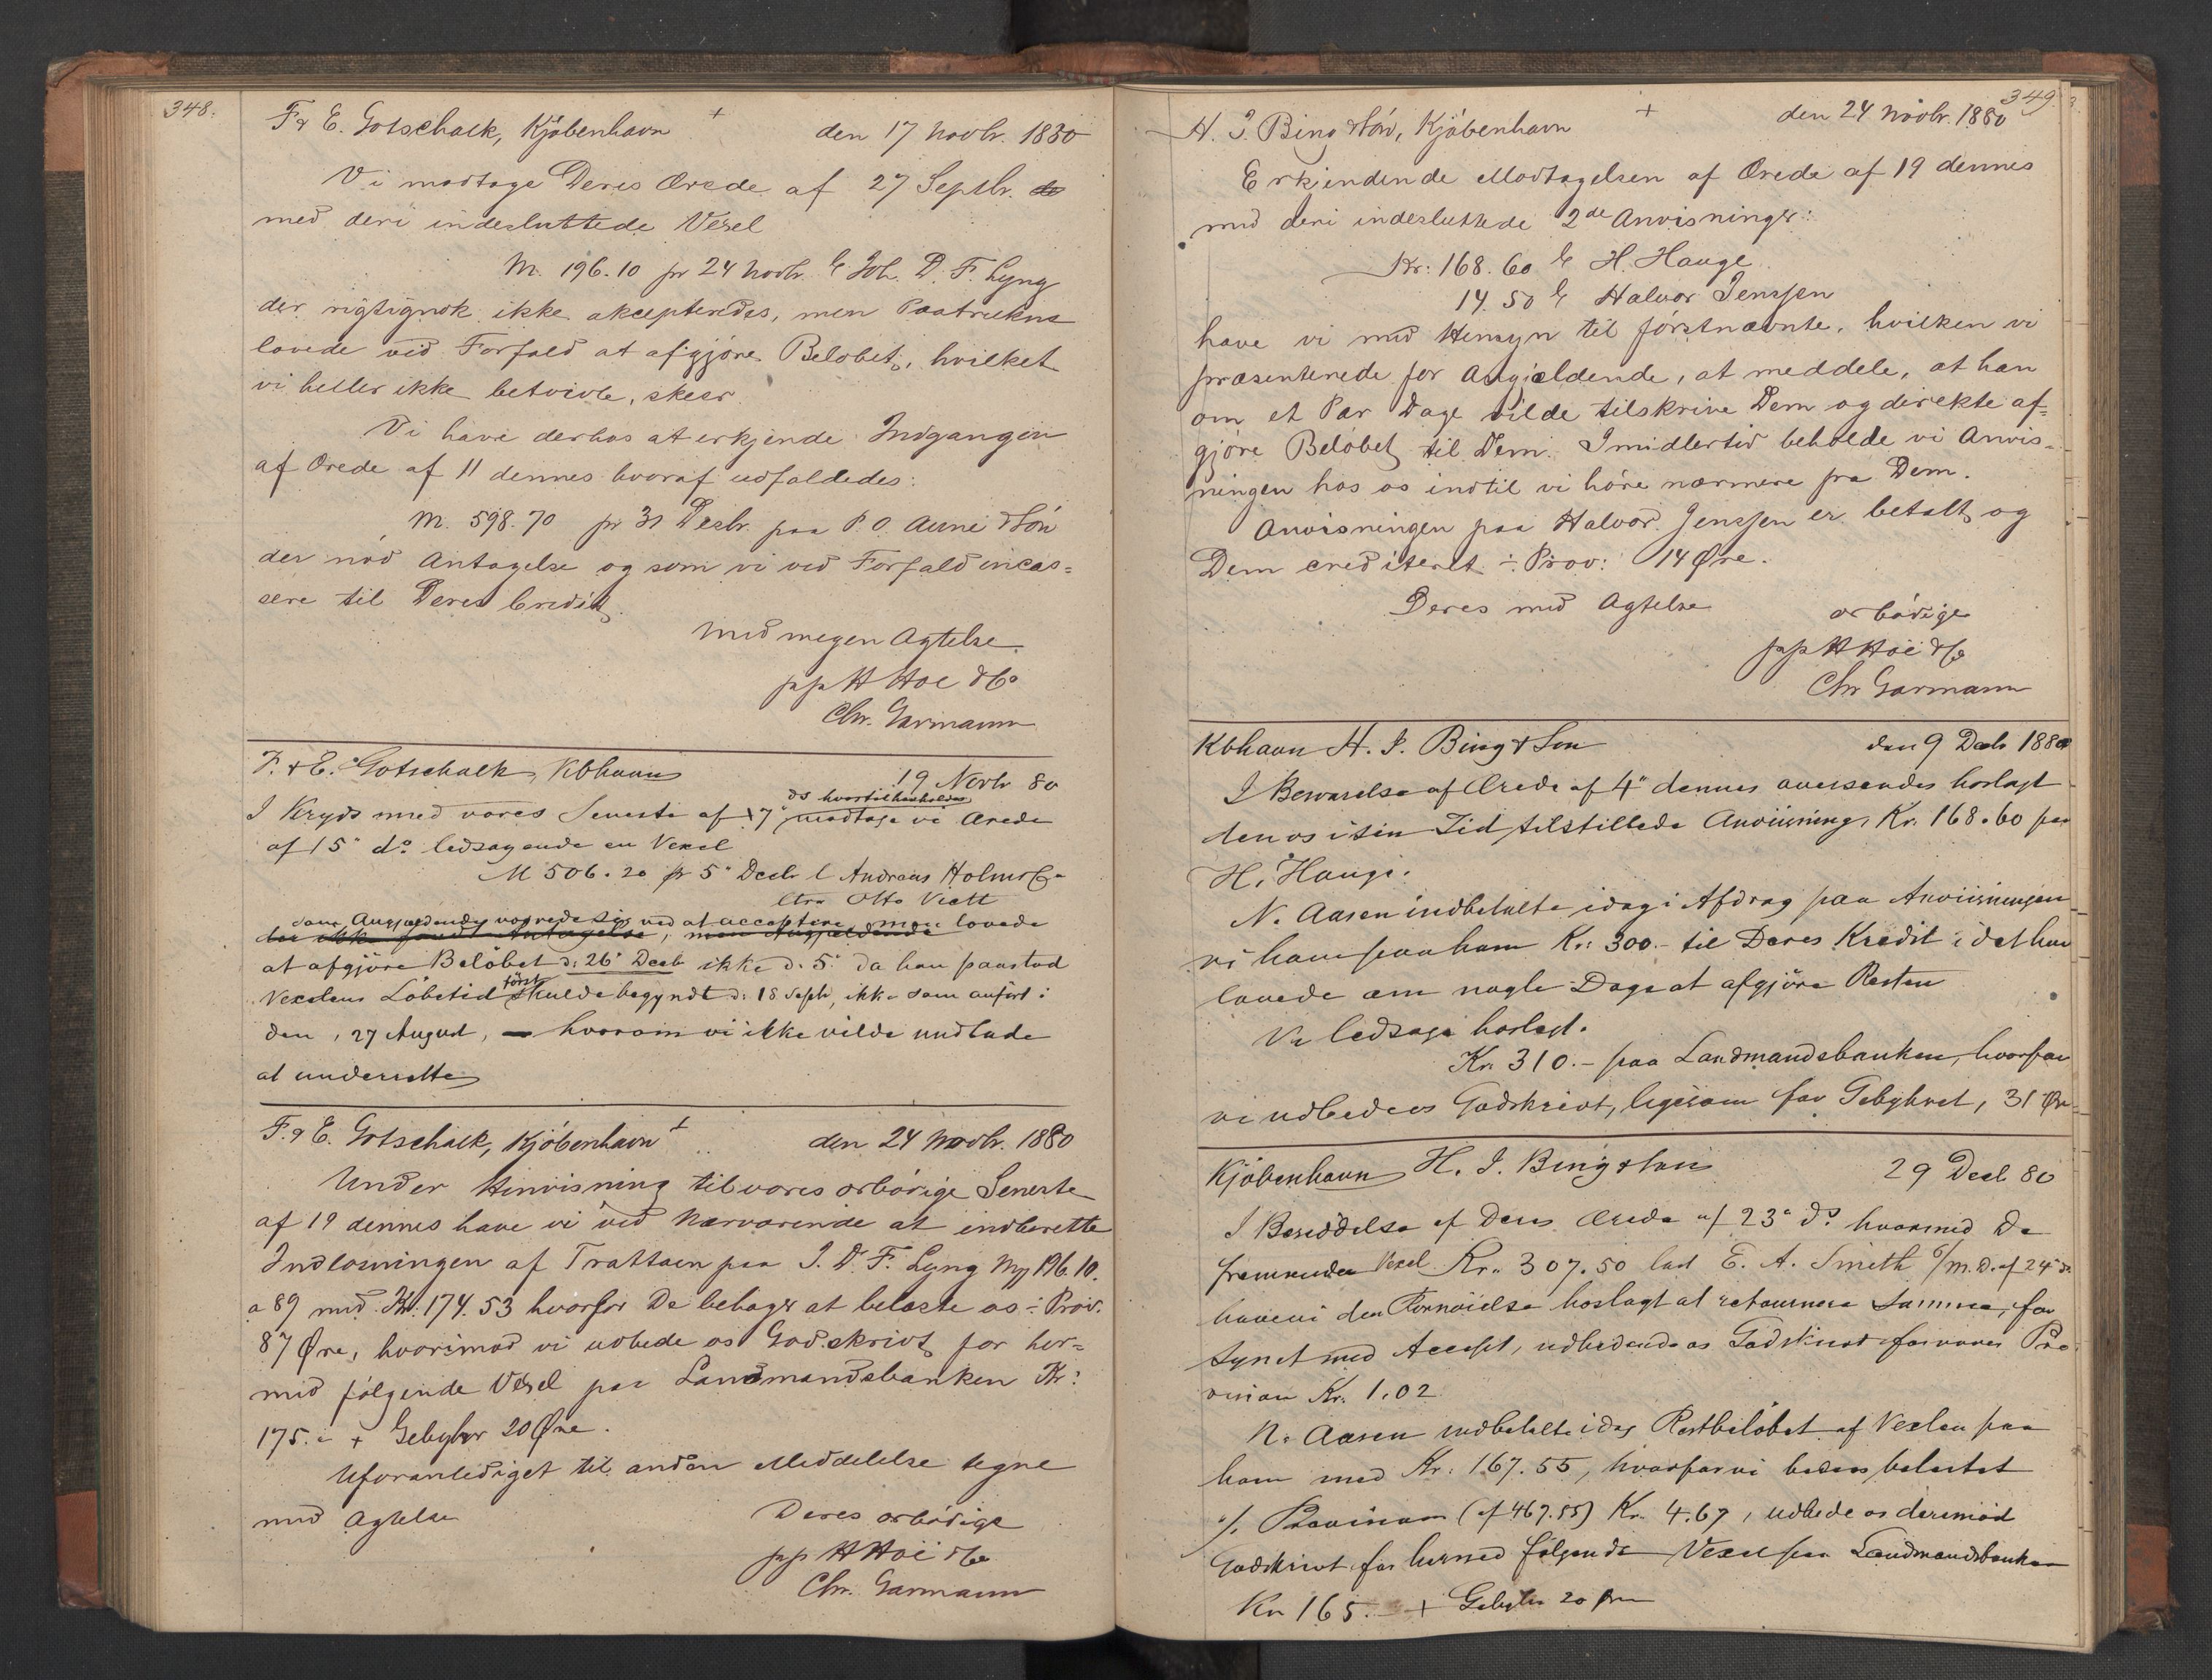 348.
F & E. Gotschalk, Kjöbenhavn + den 17 Novbr. 1880
Vi modtage Deres Ærede af 27 Septbr.
med deri indesluttede Vexel
M. 196.10 pr 24 Novbr. Joh. D. F. Lyng
der rigtignok ikke akcepteredes, men Paatrukne
lovede ved Forfald at afgjöre Beløbet, hvilket
vi heller ikke betvivle, skeer.
Vi have derhos at erkjende Indgangen
af Ærede af 11 dennes hvoraf udfaldedes:
M. 598.70 pr 31 Decbr. paa P. O. Aune & Sön
der nød Antagelse og som vi ved Forfald incas=
sere til Deres Credit.
Med megen Agtelse.
pp H Hoe & Co
Chr. Garmann
F. & E. Gotschalk, Kbhavn 19 Novbr 80
I Kryds med vores Seneste af 17 ds hvortil henholdes modtage vi Ærede
af 15 do ledsagende en Vexel
M 506.20 pr 5 Decb Andreas Holm & Co
Otto Viett
som Angjældende vægrede sig ved at acceptere, men lovede
der ikke fandt Antagelse, men Angjældende
at afgjöre Belöbet d: 26 Decb ikke d. 5 da han paastod
Vexelens Löbetid först skulde begyndt d: 18 Septb, ikke som anfört i
den, 27 August, – hvorom vi ikke vilde undlade
at underrette
F. & E. Gotschalk, Kjöbenhavn + den 24 Novbr. 1880
Under Henvisning til vores ærbödige Seneste
af 19 dennes have vi ved Nærværende at indberette
Indlösningen af Trattaen paa J. D. F. Lyng M 196.10.
a 89 med Kr. 174.53 hvorfor De behager at belaste os ÷ Prov.
87 Øre, hvorimod vi udbede os Godskrivt for her=
med fölgende Vexel paa Landmandsbanken Kr:
175.- + Gebyhr 20 Øre.
Uforanlediget til anden Meddelelse tegne
med Agtelse Deres ærbödige
pp H Hoe & Co
Chr. Garmann
349.
H. J. Bing & Sön, Kjöbenhavn + den 24 Novbr. 1880
Erkjendende Modtagelsen af Ærede af 19 dennes
med deri indesluttede 2de Anvisninger:
Kr: 168.60 H. Hauge
14.50 Halvor Jenssen
have vi med Hensyn til förstnævnte, hvilken vi
præsenterede for Angjældende, at meddele, at han
om et Par Dage vilde tilskrive Dem og direkte af=
gjöre Belöbet til Dem. Imidlertid beholde vi Anvis=
ningen hos os indtil vi höre nærmere fra Dem.
Anvisningen paa Halvor Jenssen er betalt og
Dem crediteret ÷ Prov: 14 Øre.
Deres med Agtelse ærbödige
pp H Hoe & Co
Chr Garmann
Kbhavn H. J. Bing & Son den 9 Decb 1880
I Besvarelse af Ærede af 4 dennes oversendes hoslagt
den os i sin Tid tilstillede Anviisning, Kr. 168.60 paa
H. Hauge.
N. Aasen indbetalte idag i Afdrag paa Anviisningen
vi have paa ham Kr: 300.- til Deres Kredit idet han
lovede om nogle Dage at afgjöre Resten
Vi ledsage hoslagt.
Kr. 310.- paa Landmandsbanken, hvorfor
vi udbedes Godskrivt, ligesom for Gebyhret, 31 Øre
Kjöbenhavn H. J. Bing & Son 29 Decb 80
I Besiddelse af Deres Ærede af 23 ds hvormed De
fremsender Vexel Kr. 307.50 E. A. Smith /m. D. af 24 ds
have vi den Fornöielse hoslagt at retournere samme, for
synet med Accept, udbedende os Godskrivt for vores Pro
vision Kr. 1.02
N. Aasen indbetalte idag Restbelöbet af Vexlen paa
ham med Kr: 167.55, hvorfor vi bedes belastet
% Provision (af 467.55) Kr. 4.67, udbede os derimod
Godskrivt for hermed fölgende Vexel paa Landmandsbanken
Kr 165.- + Gebyhr 20 Øre